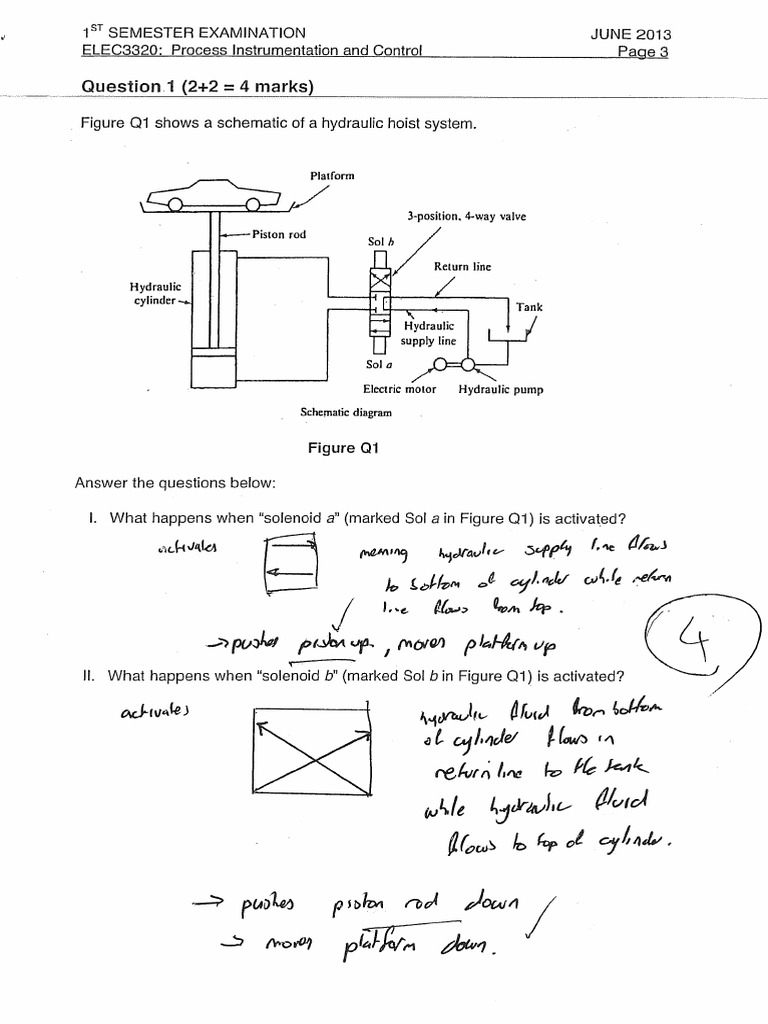 1ST SEMESTER EXAMINATION JUNE 2013
ELEC3320: Process Instrumentation and Control Page 3
Question 1 (2+2 = 4 marks)
Figure Q1 shows a schematic of a hydraulic hoist system.
Platform
3-position, 4-way valve
Piston rod
Sol b
Return line
Hydraulic
cylinder
Tank
Hydraulic
supply line
Sol a
Electric motor Hydraulic pump
Schematic diagram
Figure Q1
Answer the questions below:
I. What happens when "solenoid a" (marked Sol a in Figure Q1) is activated?
activates
meaning hydraulic supply line flows
to bottom of cylinder while return
line flows from top.
→ pushes piston up, moves platform up
4
II. What happens when "solenoid b" (marked Sol b in Figure Q1) is activated?
activates
hydraulic fluid from bottom
of cylinder flows in
return line to the tank
while hydraulic fluid
flows to top of cylinder.
→ pushes piston rod down
→ moves platform down.